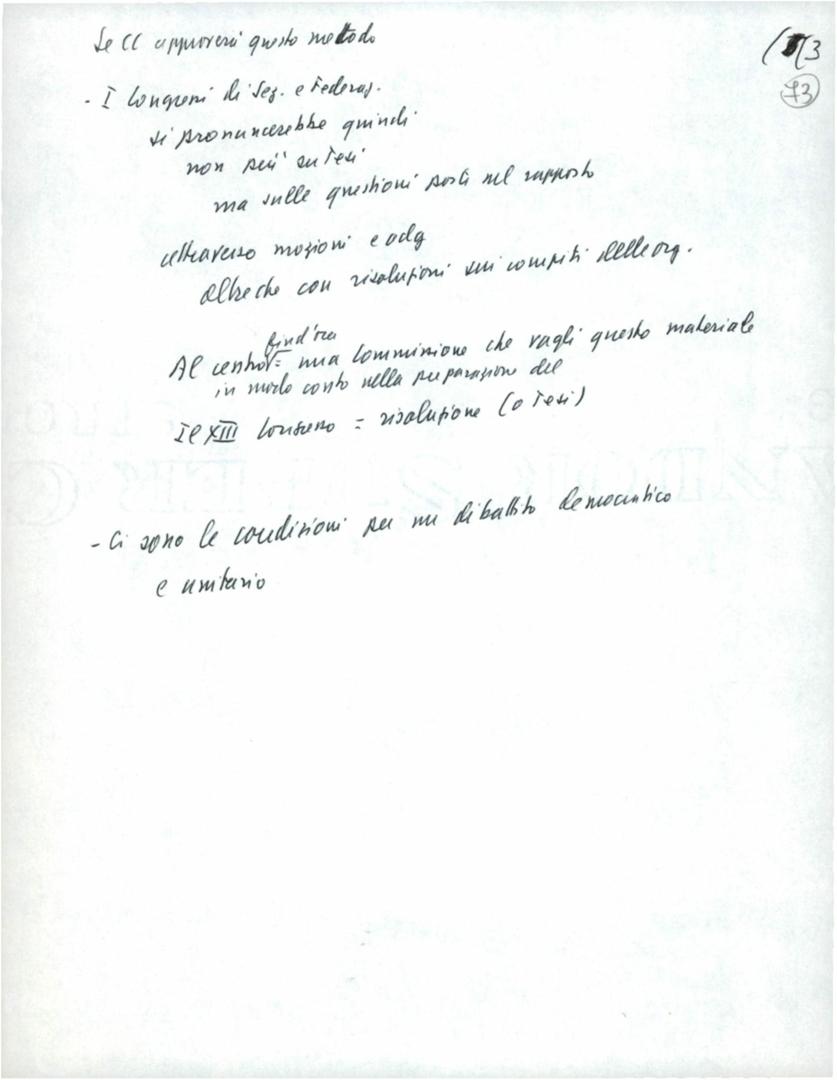 Se CC approverà questo metodo
(3
73
- I Congressi di Sez. e Federaz.
si pronuncerebbe quindi
non più su Tesi
ma sulle questioni posti nel rapporto
attraverso mozioni e odg
oltreche con risoluzioni sui compiti delle org.
fin d'ora
Al centro = una Commissione che vagli questo materiale
in modo conto nella preparazione del
Il XIII Congresso = risoluzione (o Tesi)
- Ci sono le condizioni per un dibattito democratico
e unitario